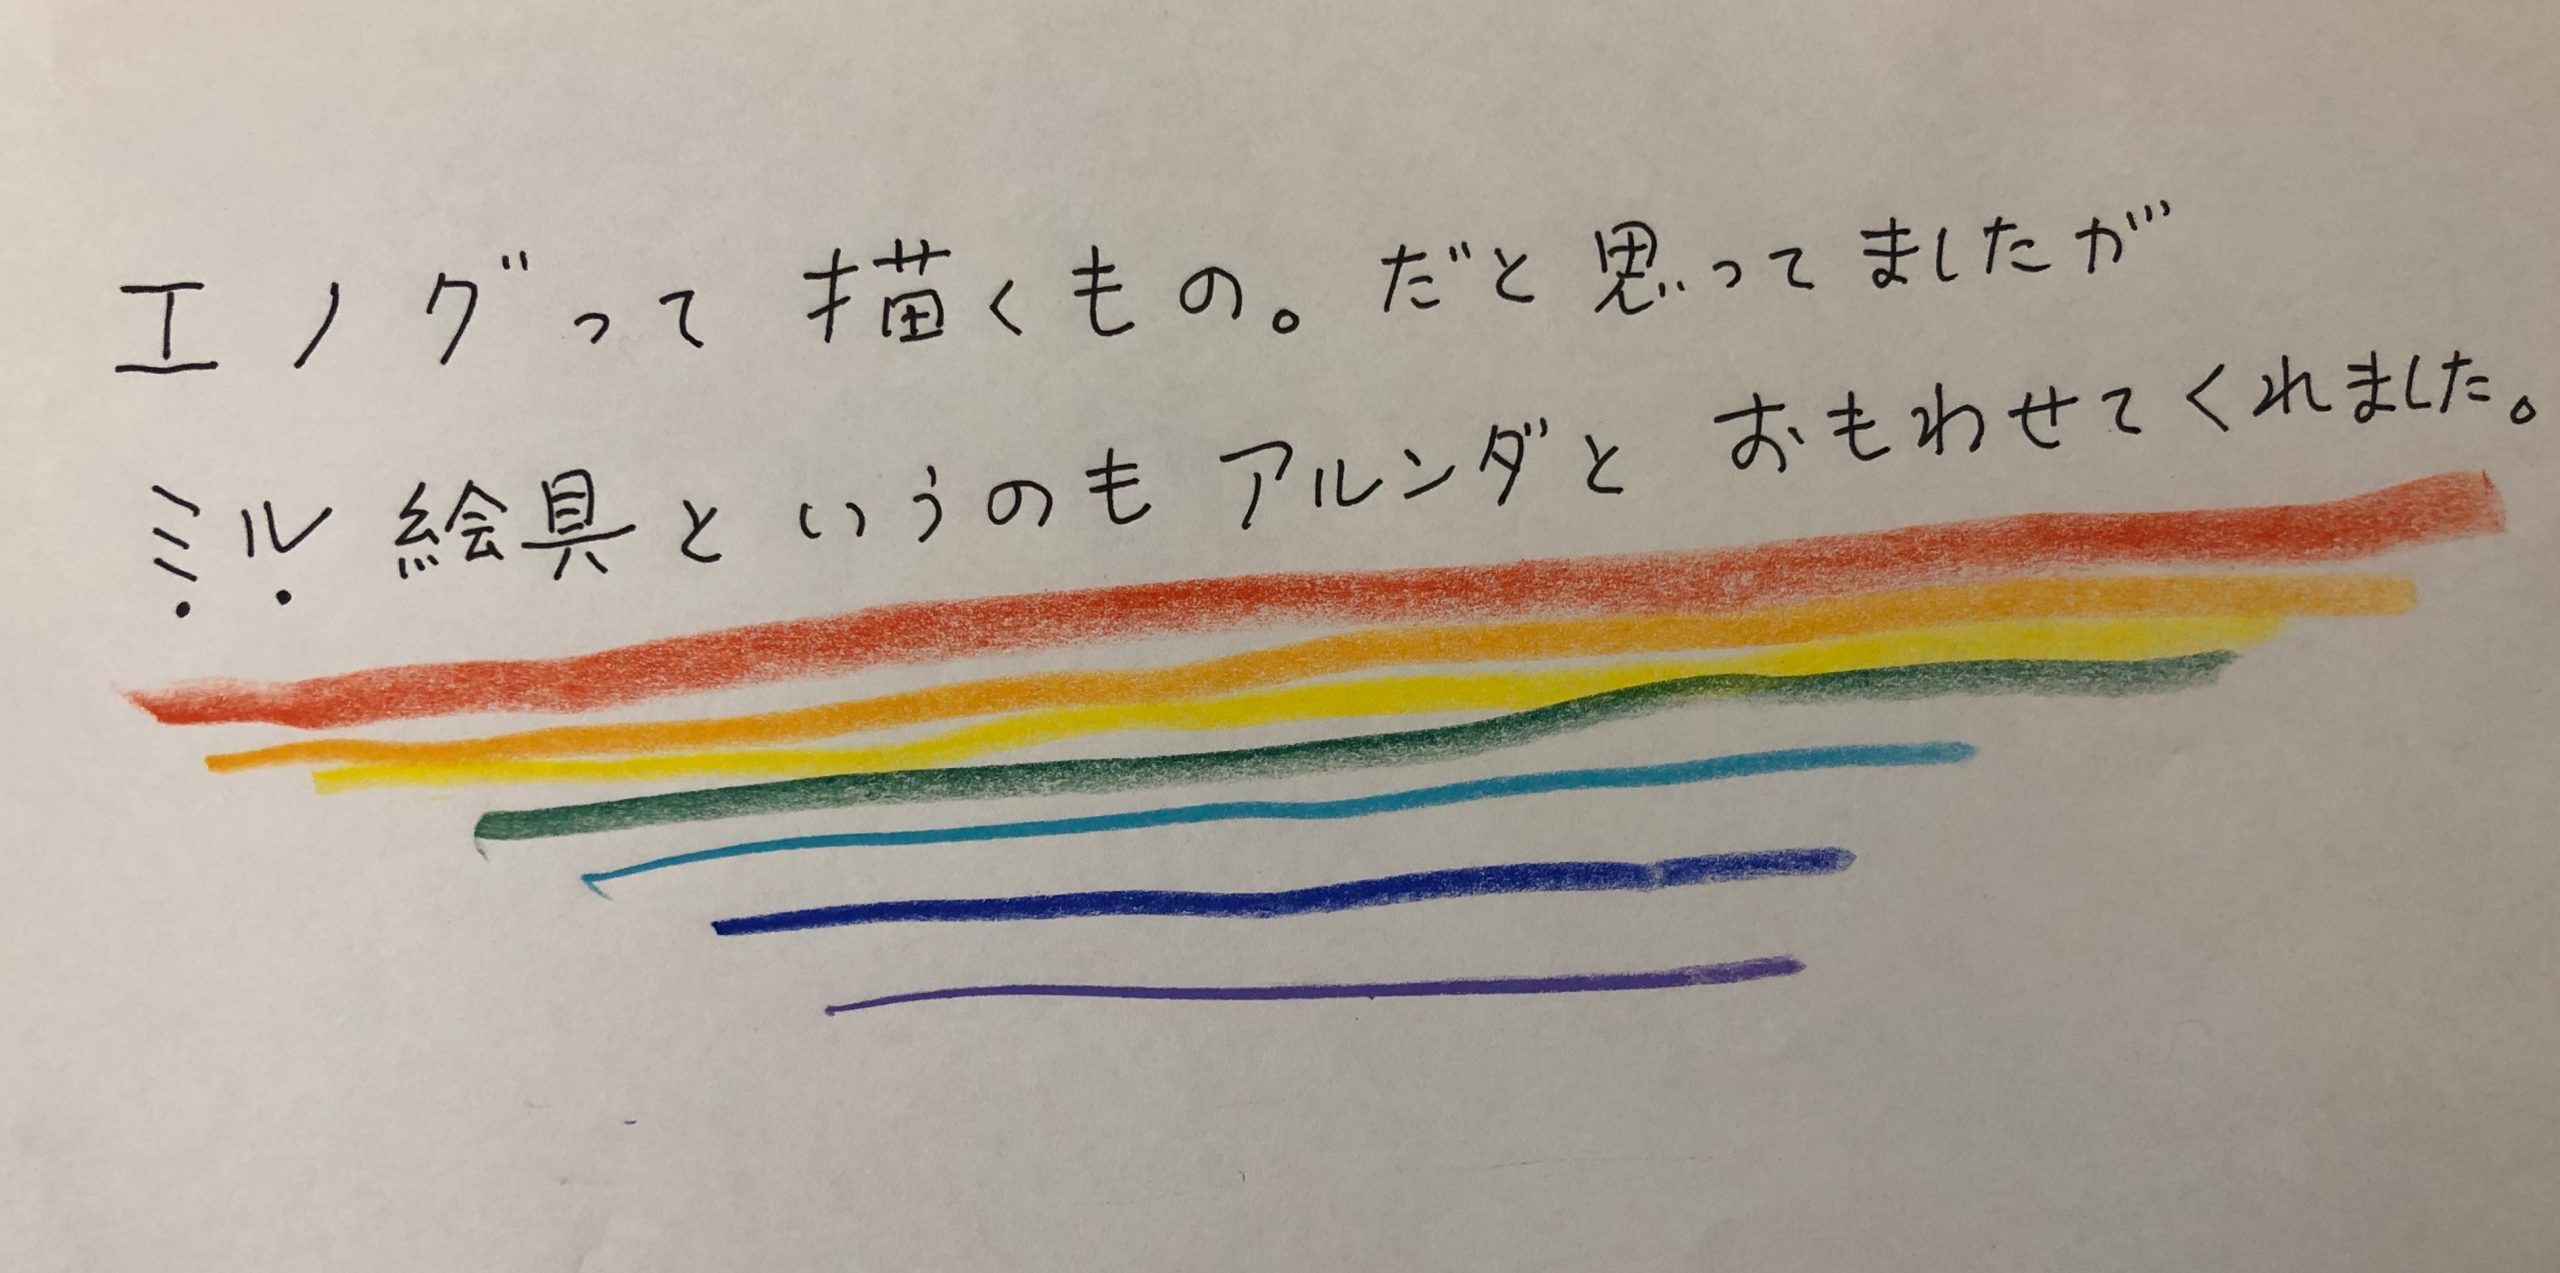 エノグって描くもの。だと思ってましたが
ミル絵具というのもアルンダとおもわせてくれました。